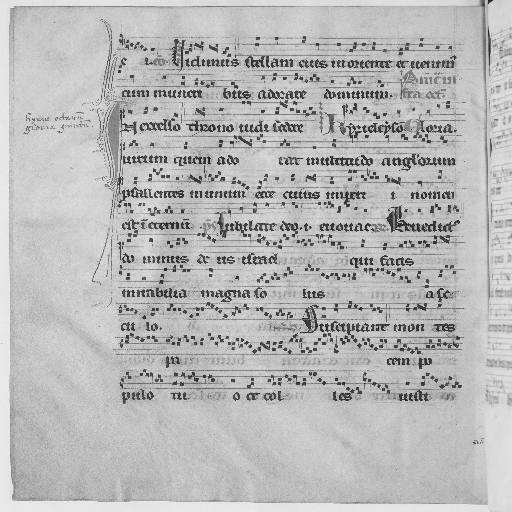 c. co. Vidimus stellam eius in oriente et uenim
cum muneri bus adorate dominum.
N excelso throno uidi sedere Kyrieleyson Gloria.
uirum quem ado rat multitudo anglorum
psallentes in unum ecce cuius imperi i nomen
est in eternū ps Iubilate deo. i. euouae Benedict
do minus de us israel qui facis
mirabilia magna so lus a se
cu lo. Suscipiant mon tes
pa cem po
pulo tu o et col les iusti